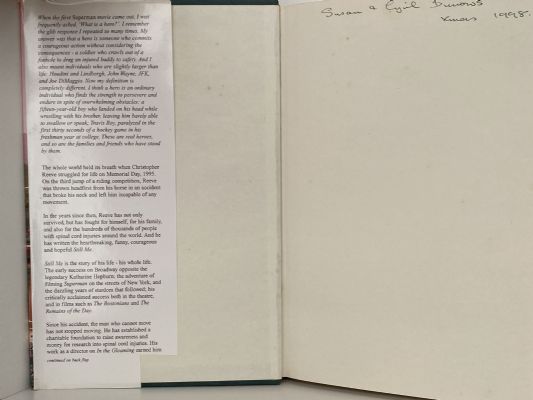 When the first Superman movie came out, I was
frequently asked, 'What is a hero?'. I remember
the glib response I repeated so many times. My
answer was that a hero is someone who commits
a courageous action without considering the
consequences - a soldier who crawls out of a
foxhole to drag an injured buddy to safety. And I
also meant individuals who are slightly larger than
life: Houdini and Lindbergh, John Wayne, JFK,
and Joe DiMaggio. Now my definition is
completely different. I think a hero is an ordinary
individual who finds the strength to persevere and
endure in spite of overwhelming obstacles: a
fifteen-year-old boy who landed on his head while
wrestling with his brother, leaving him barely able
to swallow or speak; Travis Roy, paralyzed in the
first thirty seconds of a hockey game in his
freshman year at college. These are real heroes,
and so are the families and friends who have stood
by them.
The whole world held its breath when Christopher
Reeve struggled for life on Memorial Day, 1995.
On the third jump of a riding competition, Reeve
was thrown headfirst from his horse in an accident
that broke his neck and left him incapable of any
movement.
In the years since then, Reeve has not only
survived, but has fought for himself, for his family,
and also for the hundreds of thousands of people
with spinal cord injuries around the world. And he
has written the heartbreaking, funny, courageous
and hopeful Still Me.
Still Me is the story of his life - his whole life.
The early success on Broadway opposite the
legendary Katharine Hepburn; the adventure of
Filming Superman on the streets of New York, and
the dazzling years of stardom that followed; his
critically acclaimed success both in the theatre,
and in films such as The Bostonians and The
Remains of the Day.
Since his accident, the man who cannot move
has not stopped moving. He has established a
charitable foundation to raise awareness and
money for research into spinal cord injuries. His
work as a director on In the Gloaming earned him
continued on back flap
Susan & Cyril
Xmas 1998.